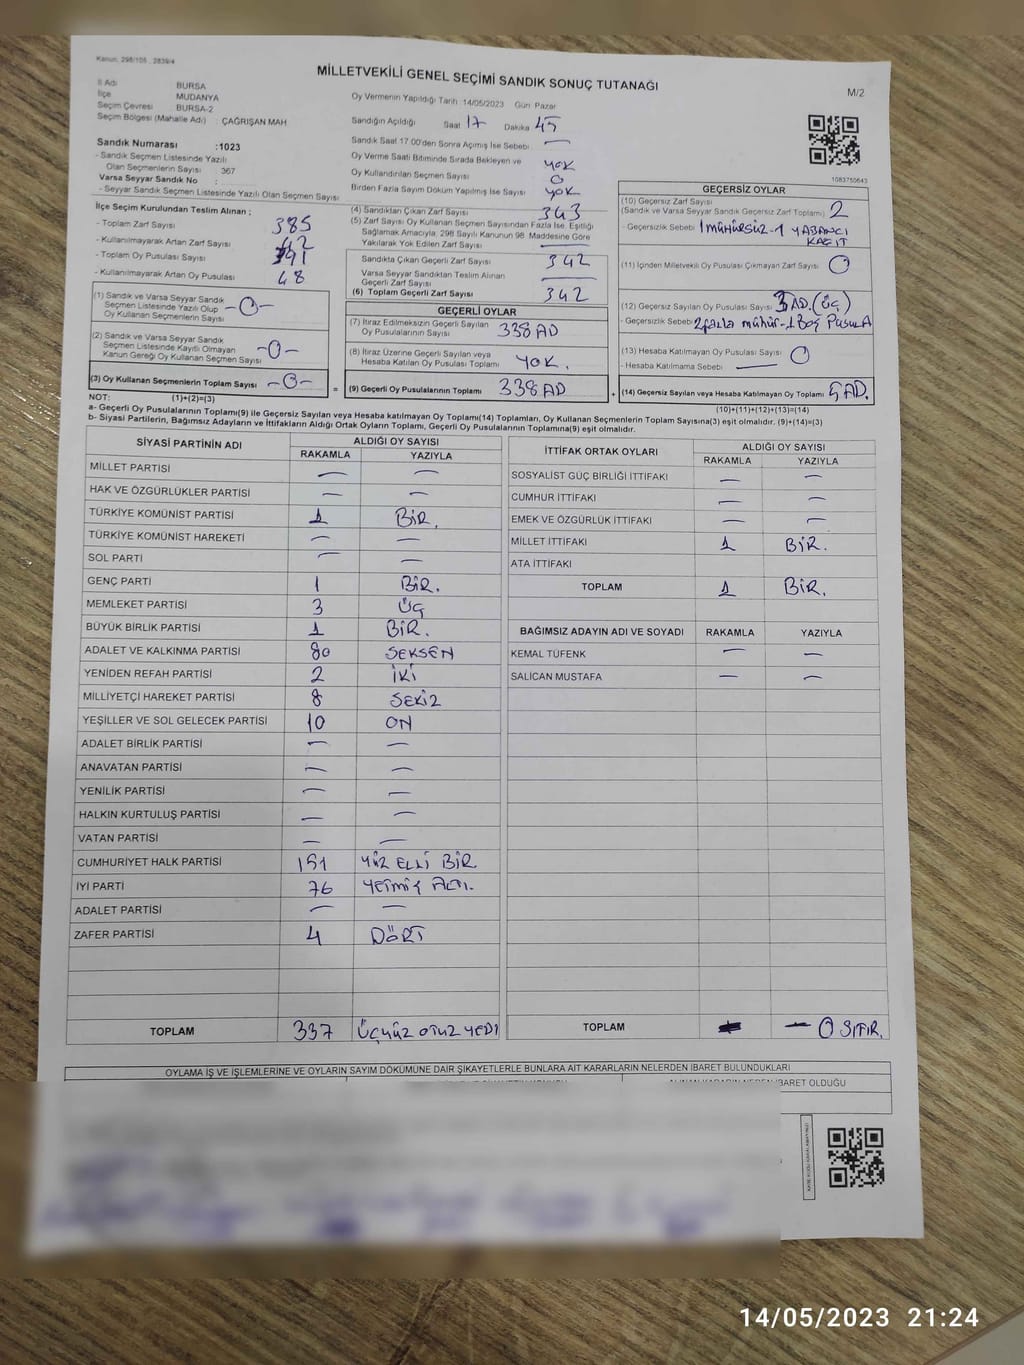 Kanun, 298/105 , 2839/4
MİLLETVEKİLİ GENEL SEÇİMİ SANDIK SONUÇ TUTANAĞI
M/2
İl Adı BURSA
İlçe MUDANYA
Seçim Çevresi BURSA-2
Seçim Bölgesi (Mahalle Adı) : ÇAĞRIŞAN MAH
Sandık Numarası :1023
- Sandık Seçmen Listesinde Yazılı
Olan Seçmenlerin Sayısı : 367
Varsa Seyyar Sandık No :
- Seyyar Sandık Seçmen Listesinde Yazılı Olan Seçmen Sayısı:
Oy Vermenin Yapıldığı Tarih 14/05/2023 Gün Pazar
Sandığın Açıldığı Saat 17 Dakika 45
Sandık Saat 17.00'den Sonra Açılmış İse Sebebi —
Oy Verme Saati Bitiminde Sırada Bekleyen ve YOK
Oy Kullandırılan Seçmen Sayısı 0
Birden Fazla Sayım Döküm Yapılmış İse Sayısı YOK
1083750643
İlçe Seçim Kurulundan Teslim Alınan ;
- Toplam Zarf Sayısı 385
- Kullanılmayarak Artan Zarf Sayısı 42
- Toplam Oy Pusulası Sayısı 391
- Kullanılmayarak Artan Oy Pusulası 48
(1) Sandık ve Varsa Seyyar Sandık
Seçmen Listesinde Yazılı Olup -0-
Oy Kullanan Seçmenlerin Sayısı
(2) Sandık ve Varsa Seyyar Sandık
Seçmen Listesinde Kayıtlı Olmayan -0-
Kanun Gereği Oy Kullanan Seçmen Sayısı
(3) Oy Kullanan Seçmenlerin Toplam Sayısı -0-
(4) Sandıktan Çıkan Zarf Sayısı 343
(5) Zarf Sayısı Oy Kullanan Seçmen Sayısından Fazla İse, Eşitliği
Sağlamak Amacıyla, 298 Sayılı Kanunun 98. Maddesine Göre
Yakılarak Yok Edilen Zarf Sayısı —
Sandıkta Çıkan Geçerli Zarf Sayısı 342
Varsa Seyyar Sandıktan Teslim Alınan
Geçerli Zarf Sayısı —
(6) Toplam Geçerli Zarf Sayısı 342
GEÇERLİ OYLAR
(7) İtiraz Edilmeksizin Geçerli Sayılan
Oy Pusulalarının Sayısı 338 AD
(8) İtiraz Üzerine Geçerli Sayılan veya
Hesaba Katılan Oy Pusulası Toplamı YOK.
= (9) Geçerli Oy Pusulalarının Toplamı 338 AD
GEÇERSİZ OYLAR
(10) Geçersiz Zarf Sayısı
(Sandık ve Varsa Seyyar Sandık Geçersiz Zarf Toplamı) 2
- Geçersizlik Sebebi 1 MÜHÜRSÜZ-1 YABANCI
KAĞIT
(11) İçinden Milletvekili Oy Pusulası Çıkmayan Zarf Sayısı 0
(12) Geçersiz Sayılan Oy Pusulası Sayısı 3 AD.(ÜÇ)
- Geçersizlik Sebebi 2 fazla mühür-1 Boş Pusula
(13) Hesaba Katılmayan Oy Pusulası Sayısı 0
- Hesaba Katılmama Sebebi —
+ (14) Geçersiz Sayılan veya Hesaba Katılmayan Oy Toplamı 5 AD.
NOT: (1)+(2)=(3)
(10)+(11)+(12)+(13)=(14)
a- Geçerli Oy Pusulalarının Toplamı(9) ile Geçersiz Sayılan veya Hesaba katılmayan Oy Toplamı(14) Toplamları, Oy Kullanan Seçmenlerin Toplam Sayısına(3) eşit olmalıdır. (9)+(14)=(3)
b- Siyasi Partilerin, Bağımsız Adayların ve İttifakların Aldığı Ortak Oyların Toplamı, Geçerli Oy Pusulalarının Toplamına(9) eşit olmalıdır.
SİYASİ PARTİNİN ADI ALDIĞI OY SAYISI
RAKAMLA YAZIYLA
MİLLET PARTİSİ — —
HAK VE ÖZGÜRLÜKLER PARTİSİ — —
TÜRKİYE KOMÜNİST PARTİSİ 1 BİR.
TÜRKİYE KOMÜNİST HAREKETİ — —
SOL PARTİ — —
GENÇ PARTİ 1 BİR.
MEMLEKET PARTİSİ 3 ÜÇ
BÜYÜK BİRLİK PARTİSİ 1 BİR.
ADALET VE KALKINMA PARTİSİ 80 SEKSEN
YENİDEN REFAH PARTİSİ 2 İKİ
MİLLİYETÇİ HAREKET PARTİSİ 8 SEKİZ
YEŞİLLER VE SOL GELECEK PARTİSİ 10 ON
ADALET BİRLİK PARTİSİ — —
ANAVATAN PARTİSİ — —
YENİLİK PARTİSİ — —
HALKIN KURTULUŞ PARTİSİ — —
VATAN PARTİSİ — —
CUMHURİYET HALK PARTİSİ 151 YÜZ ELLİ BİR
İYİ PARTİ 76 YETMİŞ ALTI.
ADALET PARTİSİ — —
ZAFER PARTİSİ 4 DÖRT
TOPLAM 337 ÜÇYÜZ OTUZ YEDİ
İTTİFAK ORTAK OYLARI ALDIĞI OY SAYISI
RAKAMLA YAZIYLA
SOSYALİST GÜÇ BİRLİĞİ İTTİFAKI — —
CUMHUR İTTİFAKI — —
EMEK VE ÖZGÜRLÜK İTTİFAKI — —
MİLLET İTTİFAKI 1 BİR.
ATA İTTİFAKI
TOPLAM 1 BİR.
BAĞIMSIZ ADAYIN ADI VE SOYADI RAKAMLA YAZIYLA
KEMAL TÜFENK — —
SALİCAN MUSTAFA — —
TOPLAM — 0 SIFIR.
OYLAMA İŞ VE İŞLEMLERİNE VE OYLARIN SAYIM DÖKÜMÜNE DAİR ŞİKAYETLERLE BUNLARA AİT KARARLARIN NELERDEN İBARET BULUNDUKLARI
İBARET OLDUĞU
14/05/2023 21:24